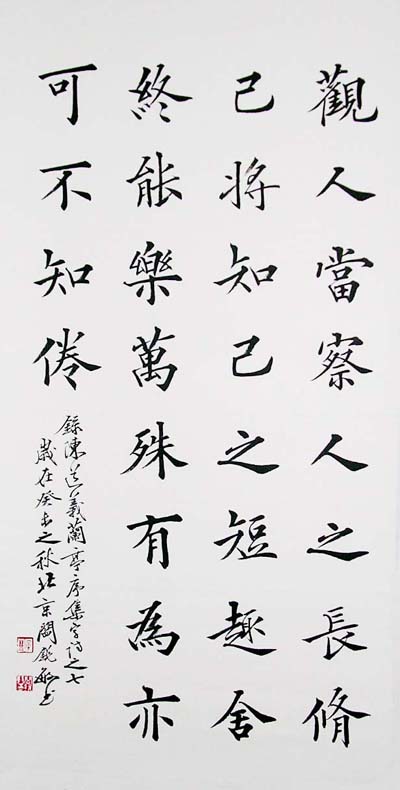 觀人當察人之長脩
己將知己之短趣舍
終能樂萬殊有為亦
可不知倦
錄陳道義蘭亭序集字詩之七
歲在癸未之秋北京閻銳敏書